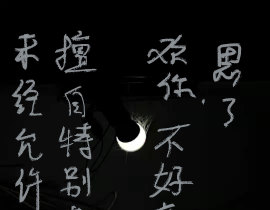 未经允许
擅自特别
欢你，不好
思了